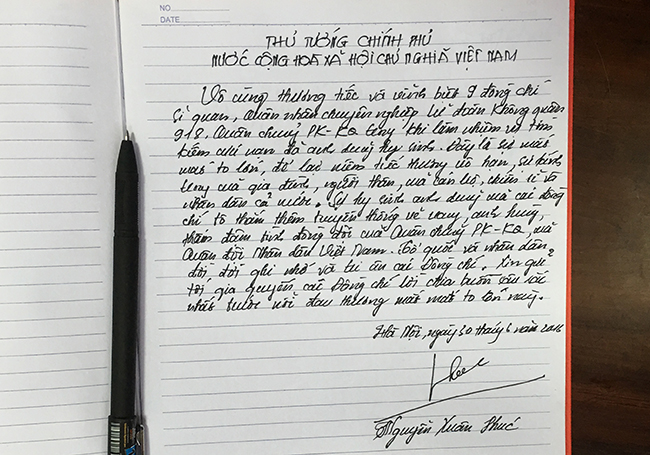 NO
DATE
THỦ TƯỚNG CHÍNH PHỦ
NƯỚC CỘNG HOÀ XÃ HỘI CHỦ NGHĨA VIỆT NAM
Vô cùng thương tiếc và vĩnh biệt 9 đồng chí
sĩ quan, quân nhân chuyên nghiệp Lữ đoàn Không quân
918. Quân chủng PK-KQ trong khi làm nhiệm vụ tìm
kiếm cứu nạn đã anh dũng hy sinh. Đây là sự mất
mát to lớn, để lại niềm tiếc thương vô hạn, sự kính
trọng của gia đình, người thân, của cán bộ, chiến sĩ và
nhân dân cả nước. Sự hy sinh anh dũng của các đồng
chí tô thắm thêm truyền thống vẻ vang, anh hùng,
thắm đậm tình đồng đội của Quân chủng PK-KQ, của
Quân đội Nhân dân Việt Nam. Tổ quốc và nhân dân
đời đời ghi nhớ và tri ân các Đồng chí. Xin gửi
tới gia quyến các Đồng chí lời chia buồn sâu sắc
nhất trước nỗi đau thương mất mát to lớn này.
Hà Nội, ngày 30 tháng 6 năm 2016
Nguyễn Xuân Phúc